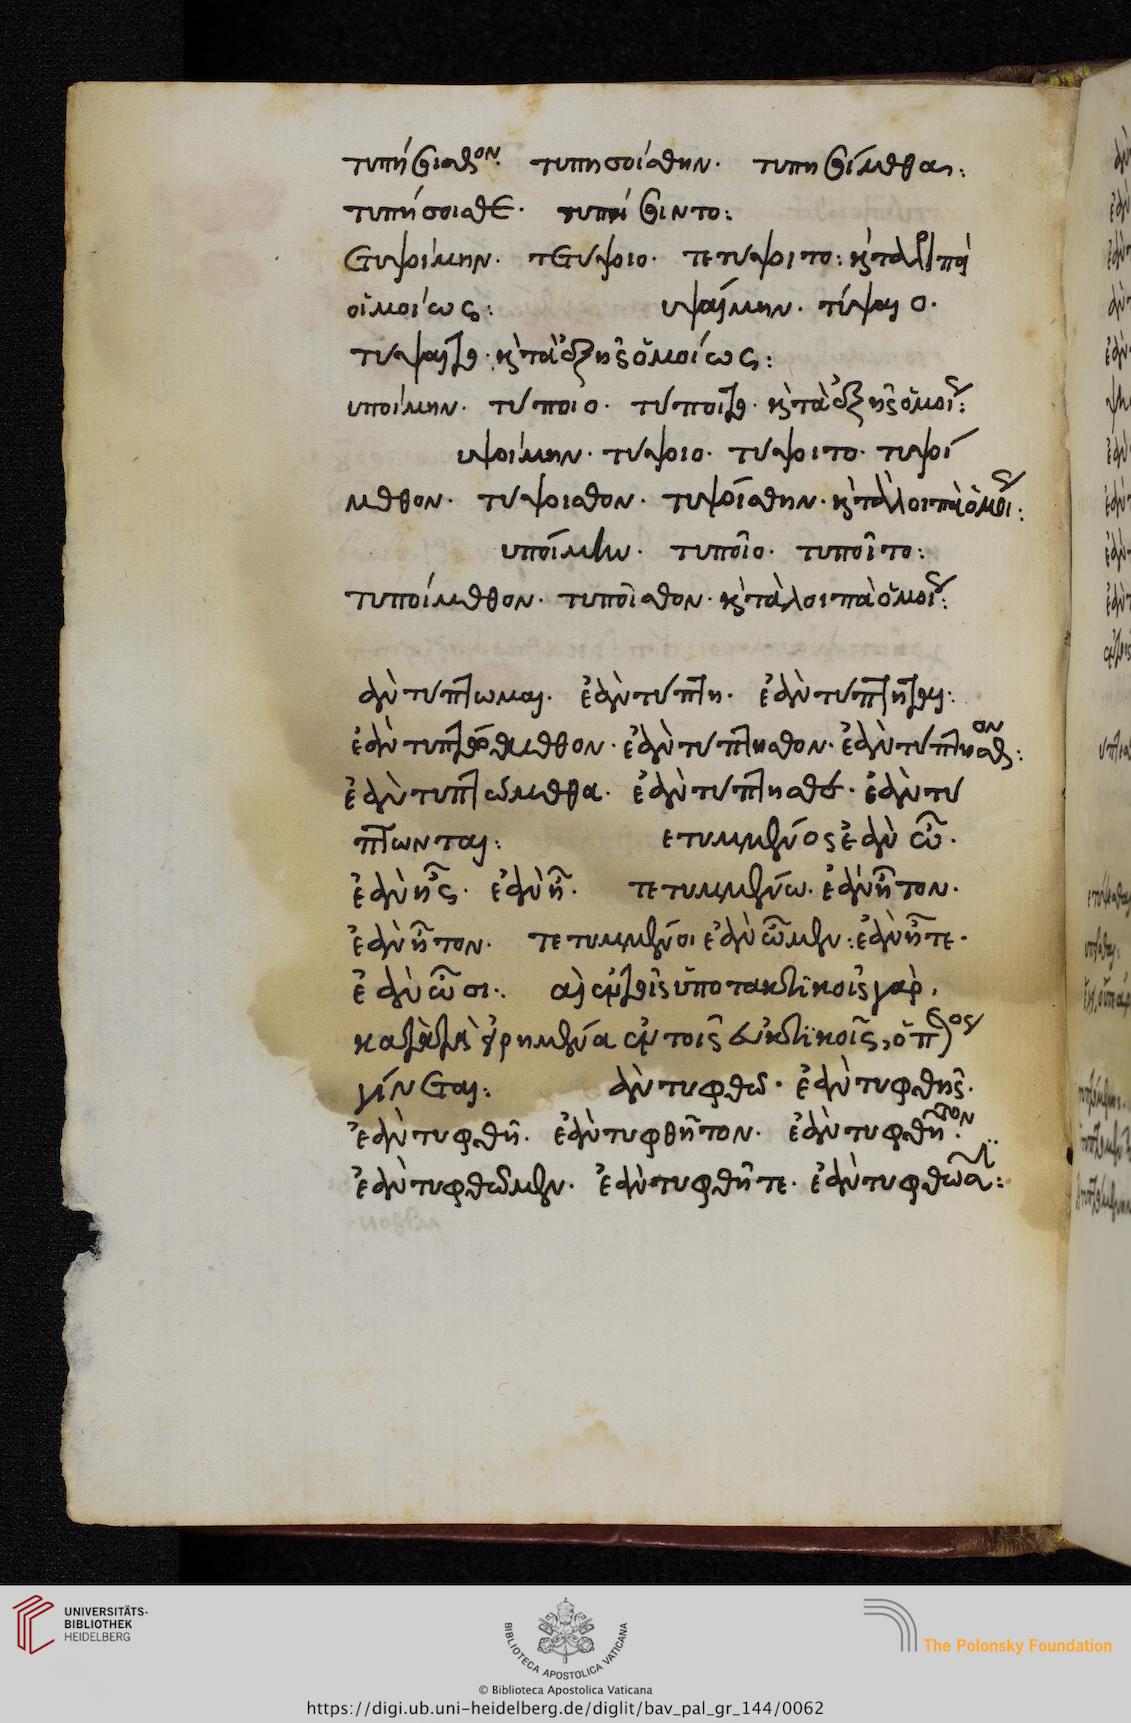 τυπήσοισθον· τυπησοίσθην· τυπησοίμεθα:
τυπήσοισθε· τυπήσοιντο:
ετυψοίμην· τετύψοιο· τετύψοιτο: κ τὰ λοιπὰ
ὁμοίως: υψαίμην· τύψαιο·
τύψαιτο· κ τὰ ἑξῆς ὁμοίως:
υποίμην· τύποιο· τύποιτο· κ τὰ ἑξῆς ὁμοίως:
υψοίμην· τύψοιο· τύψοιτο· τυψοί
μεθον· τύψοισθον· τυψοίσθην· κ τὰ λοιπὰ ὁμοί:
υποίμην· τυποῖο· τυποῖτο:
τυποίμεθον· τυποῖσθον· κ τὰ λοιπὰ ὁμοί:
ὰν τύπτωμαι· ἐὰν τύπτη· ἐὰν τύπτηται·
ἐὰν τυπτώμεθον· ἐὰν τύπτησθον· ἐὰν τύπτησθον:
ἐὰν τυπτώμεθα· ἐὰν τύπτησθε· ἐὰν τύ
πτωνται: ετυμμένος ἐὰν ὦ·
ἐὰν ἦς· ἐὰν ἦ· τετυμμένω ἐὰν ἦτον·
ἐὰν ἦτον· τετυμμένοι ἐὰν ὦμεν: ἐὰν ἦτε·
ἐὰν ὦσι: αἱ μετοχαὶ ὑποτακτικοῖς γὰρ,
τοῖς εὐκτικοῖς,
γίνεται: ὰν τυφθῶ· ἐὰν τυφθῆς·
ἐὰν τυφθῆ· ἐὰν τυφθῆτον· ἐὰν τυφθῆτον·
ἐὰν τυφθῶμεν· ἐὰν τυφθῆτε· ἐὰν τυφθῶσι:
UNIVERSITÄTS-
BIBLIOTHEK
HEIDELBERG
BIBLIOTECA APOSTOLICA VATICANA
The Polonsky Foundation
© Biblioteca Apostolica Vaticana
https://digi.ub.uni-heidelberg.de/diglit/bav_pal_gr_144/0062